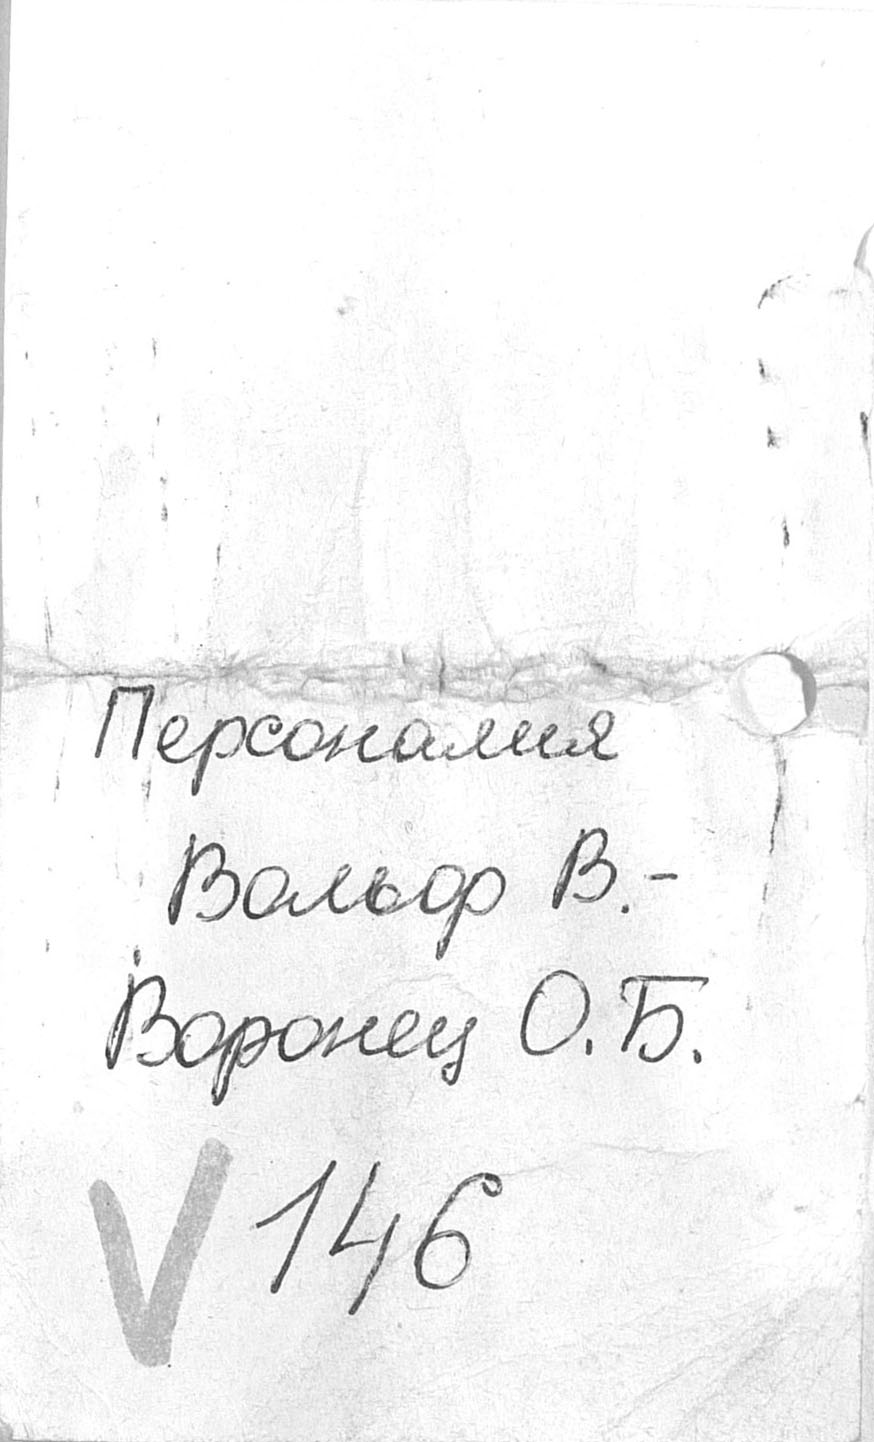 Персоналия
Вольф В.-
Воронец О.Б.
V 146